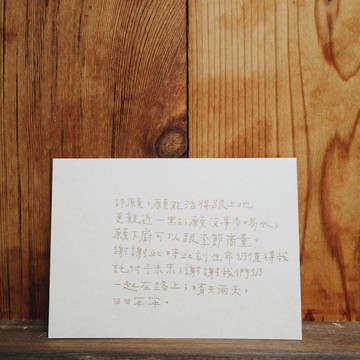 許願,願能活得跟土地
更親近一些;願沒事多喝水;
願下廚可以跟季節商量。
謝謝此時此刻生命仍值得我
託付予未來;謝謝我們仍
一起在路上;晴天雨天,
日日深深。